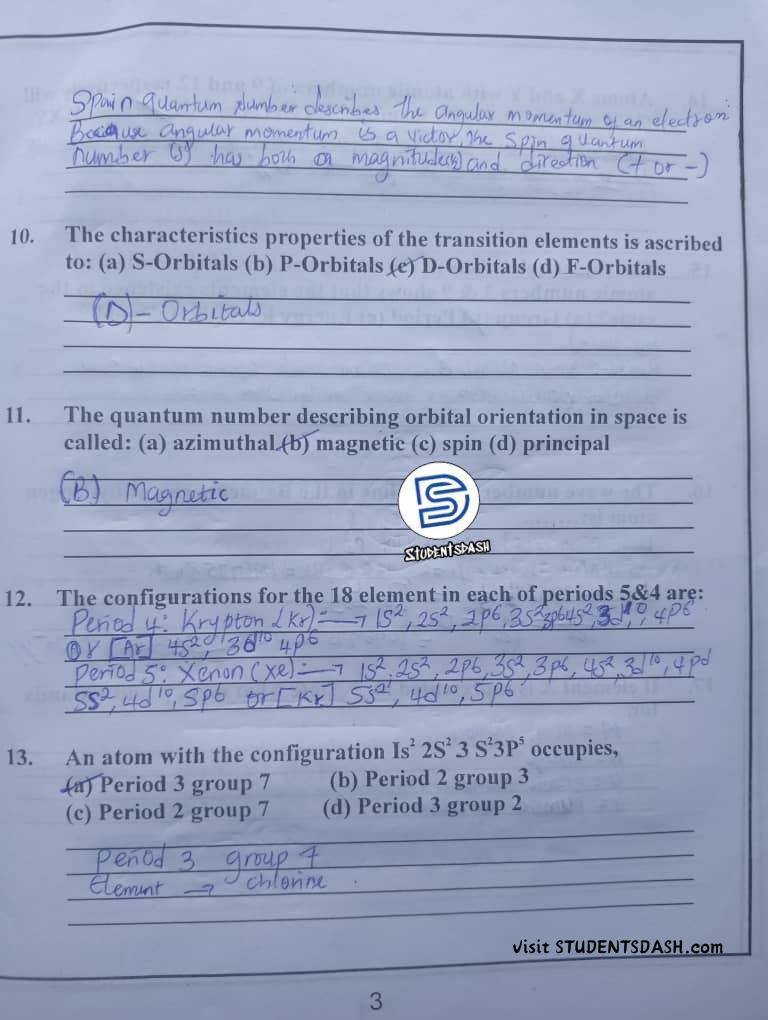 Spain quantum number describes the angular momentum of an electron
Because angular momentum is a victor, the spin quantum
number (s) has both a magnitude(½) and direction (+ or -)
10. The characteristics properties of the transition elements is ascribed
to: (a) S-Orbitals (b) P-Orbitals (c) D-Orbitals (d) F-Orbitals
(D) - Orbitals
11. The quantum number describing orbital orientation in space is
called: (a) azimuthal (b) magnetic (c) spin (d) principal
(B) Magnetic
STUDENTSDASH
12. The configurations for the 18 element in each of periods 5&4 are:
Period 4: Krypton (Kr):→ 1S², 2S², 2p6, 3S² 3p6 4S², 3d10, 4p6
Or [Ar] 4S², 3d10 4p6
Period 5: Xenon (Xe):→ 1s², 2s², 2p6, 3s², 3p6, 4s², 3d10, 4pd
5S², 4d10, 5p6 or [Kr] 5S², 4d10, 5p6
13. An atom with the configuration Is² 2S² 3 S²3P⁵ occupies,
(a) Period 3 group 7 (b) Period 2 group 3
(c) Period 2 group 7 (d) Period 3 group 2
Period 3 group 7
Element → chlorine
Visit STUDENTSDASH.com
3